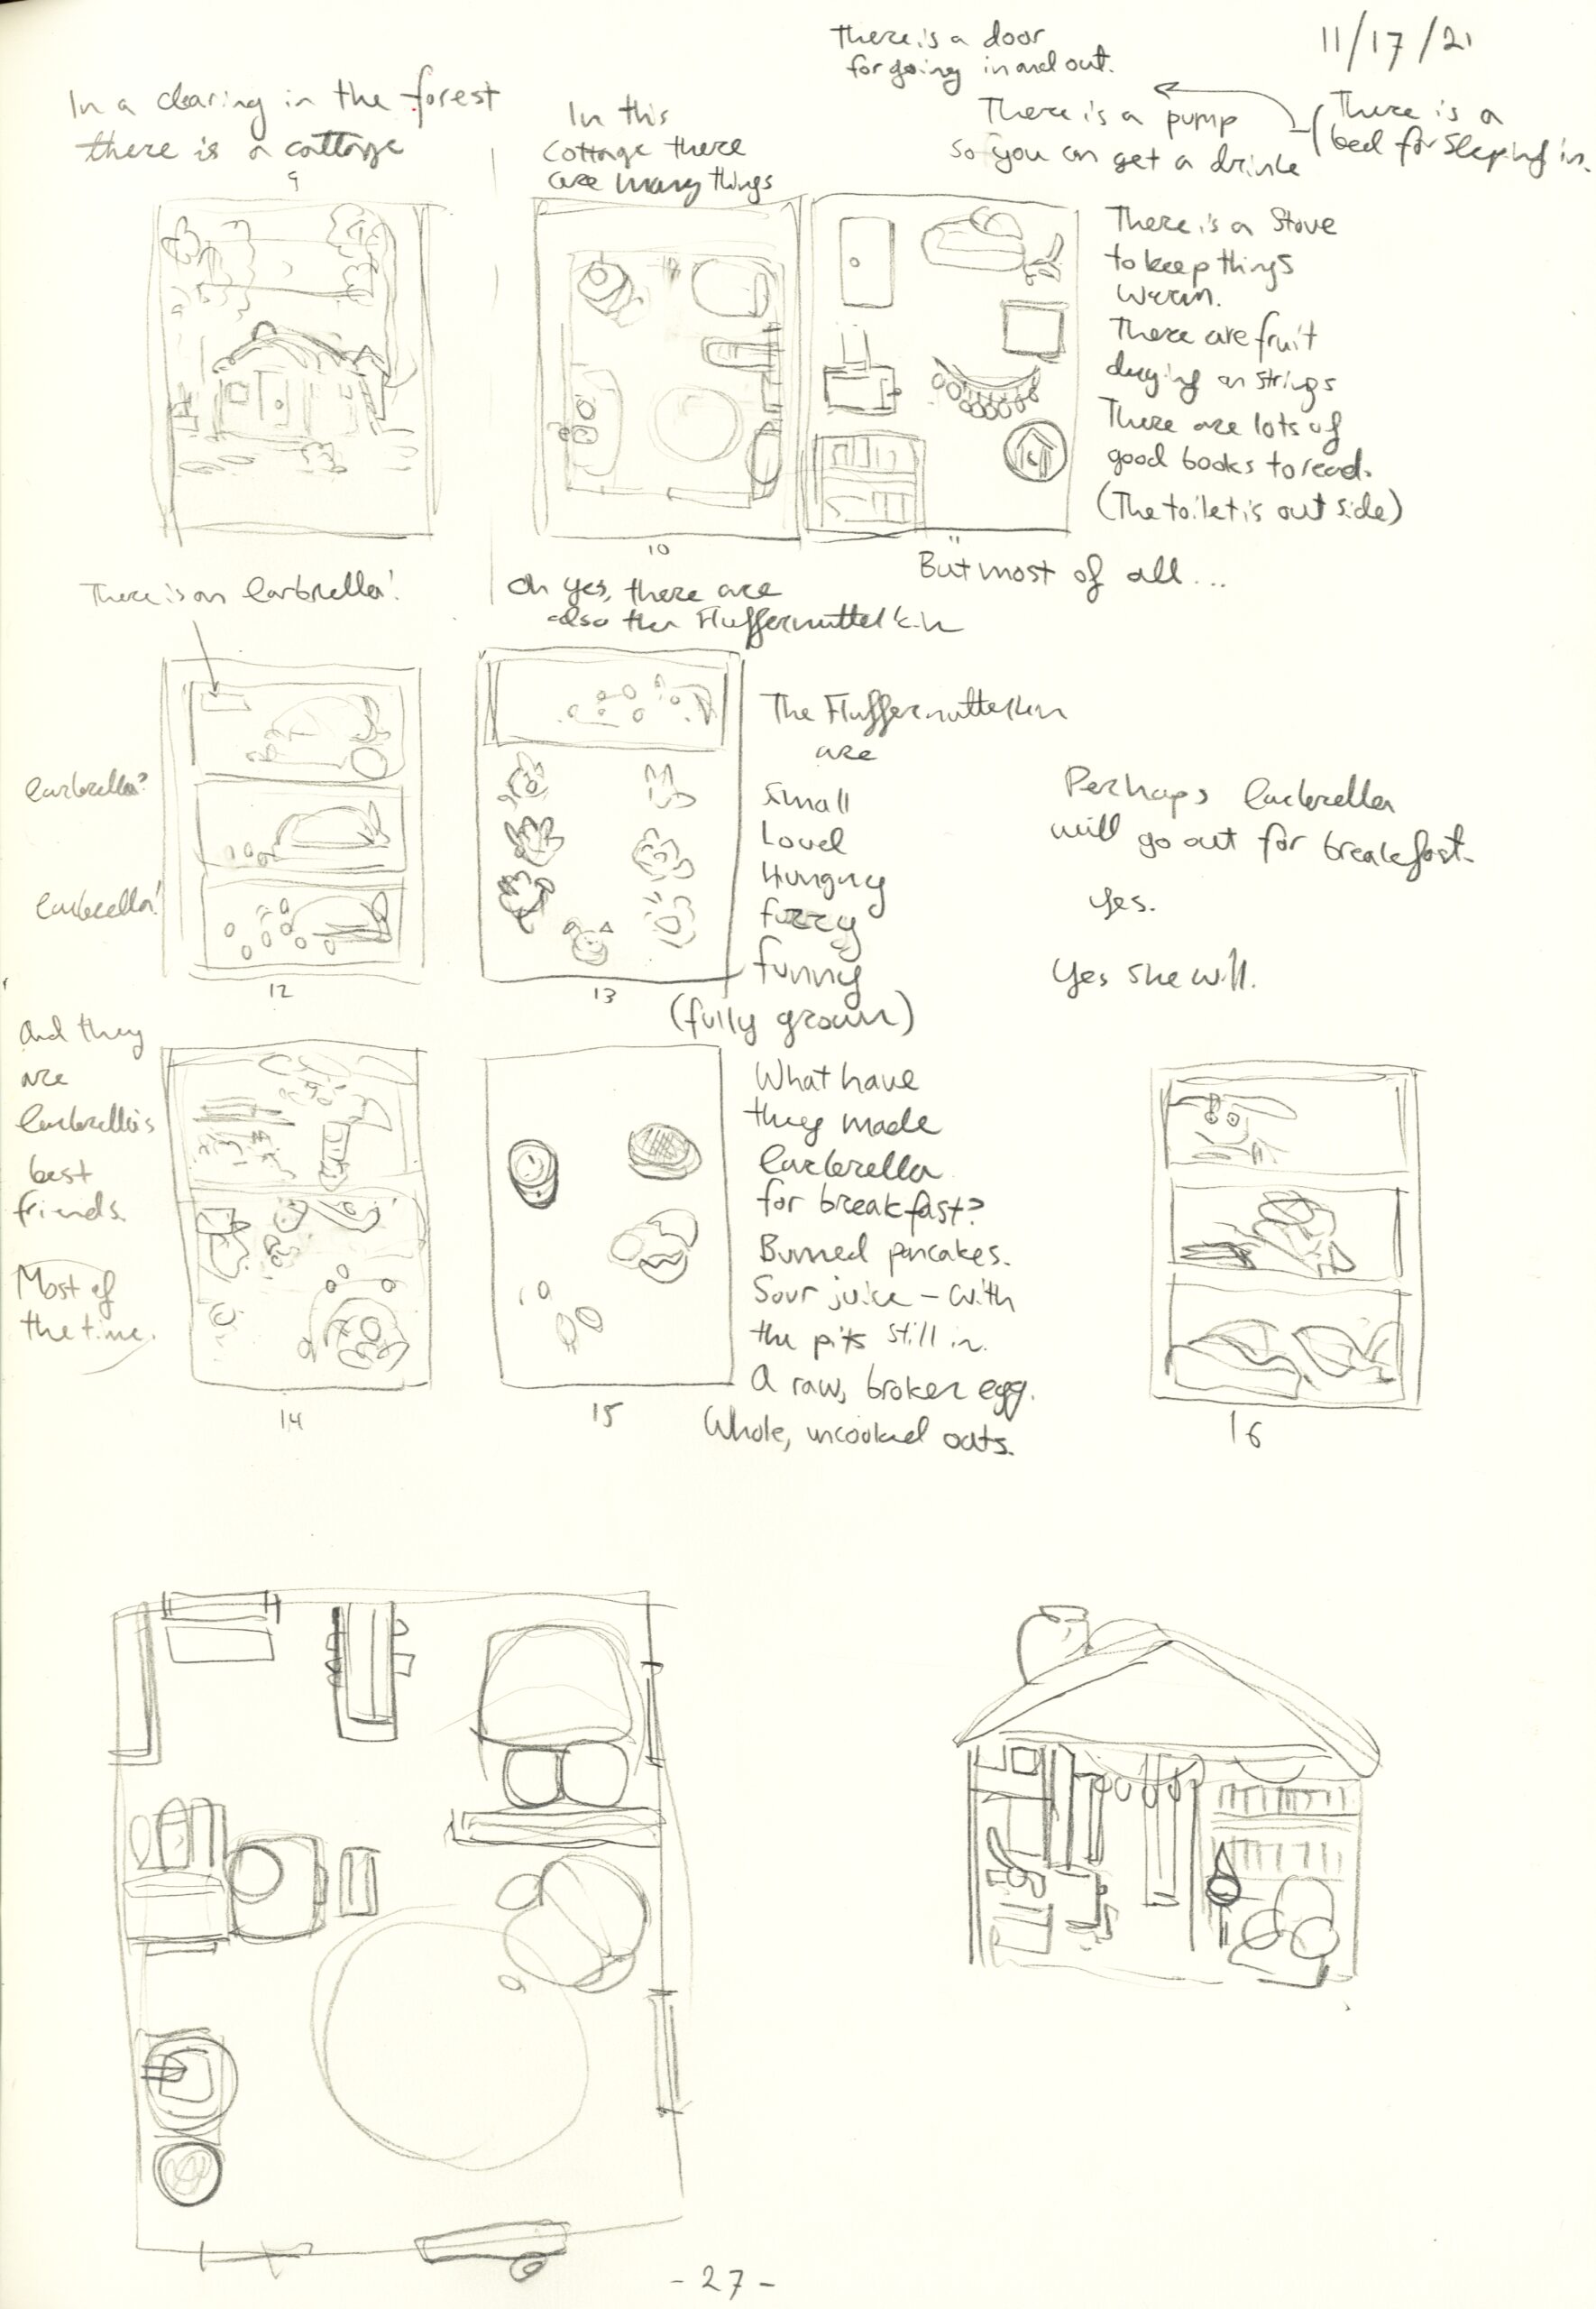 11/17/21
There is a door
for going in and out.
There is a pump
so you can get a drink
(There is a
bed for sleeping in.
In a clearing in the forest
there is a cottage
9
In this
cottage there
are many things
There is a stove
to keep things
warm.
There are fruit
drying on strings
There are lots of
good books to read.
(The toilet is outside)
10
11
But most of all...
There is an Earbrella!
Earbrella?
Earbrella!
12
Oh yes, there are
also the Fluffernuttelkin
The Fluffernuttelkin
are
Small
Loud
Hungry
fuzzy
funny
(fully grown)
13
Perhaps Earbrella
will go out for breakfast.
Yes.
Yes she will.
And they
are
Earbrella's
best
friends.
Most of
the time.
14
What have
they made
Earbrella
for breakfast?
Burned pancakes.
Sour juice - with
the pits still in.
A raw, broken egg.
Whole, uncooked oats.
15
16
- 27 -